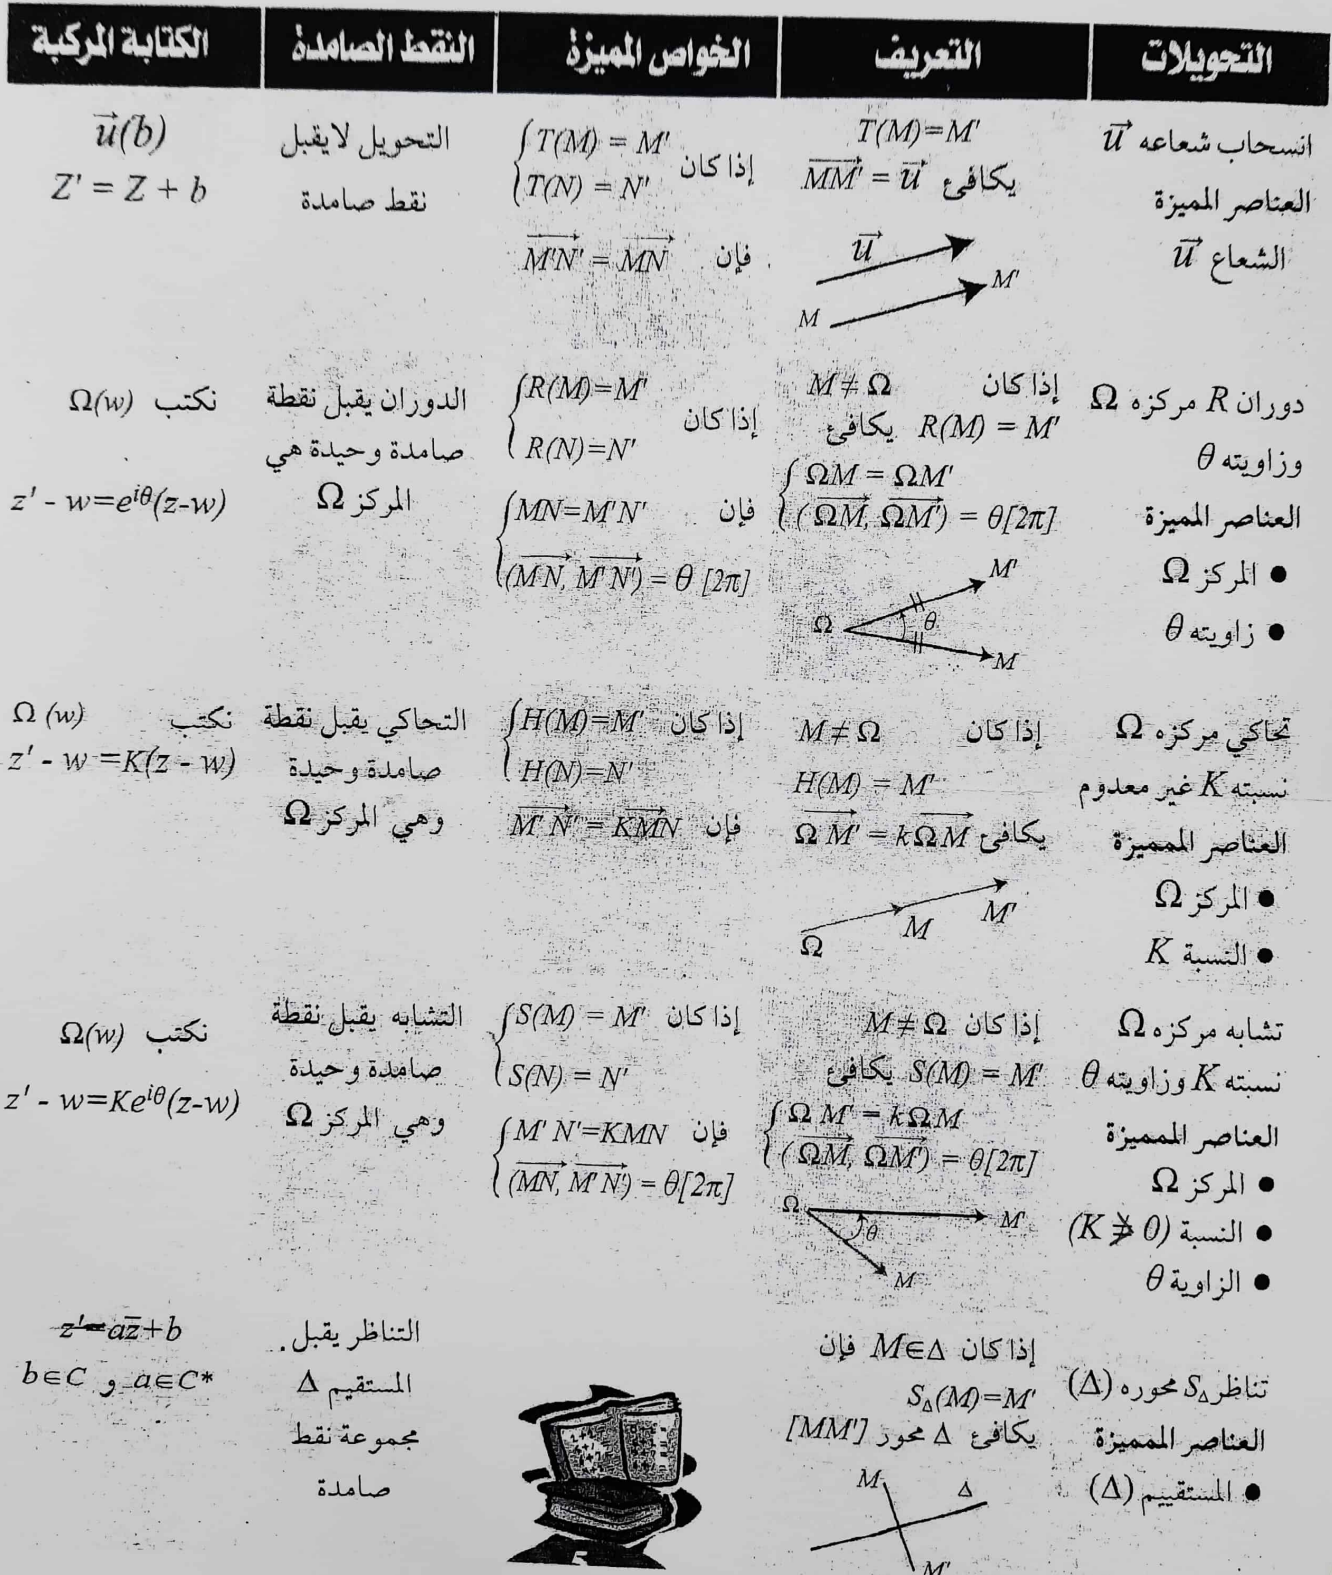 التحويلات | التعريف | الخواص المميزة | النقط الصامدة | الكتابة المركبة
انسحاب شعاعه u⃗
العناصر المميزة
الشعاع u⃗
T(M)=M'
يكافئ MM'⃗ = u⃗
u⃗
M'
M
إذا كان {T(M) = M'
T(N) = N'
فإن M'N'⃗ = MN⃗
التحويل لايقبل
نقط صامدة
u⃗(b)
Z' = Z + b
دوران R مركزه Ω
وزاويته θ
العناصر المميزة
● المركز Ω
● زاويته θ
إذا كان M ≠ Ω
R(M) = M' يكافئ
{ΩM = ΩM'
(ΩM⃗, ΩM'⃗) = θ[2π]
M'
Ω θ
M
إذا كان {R(M)=M'
R(N)=N'
فإن {MN=M'N'
(MN⃗, M'N'⃗) = θ [2π]
الدوران يقبل نقطة
صامدة وحيدة هي
المركز Ω
نكتب Ω(w)
z' - w=e^{iθ}(z-w)
تحاكي مركزه Ω
نسبته K غير معدوم
العناصر المميزة
● المركز Ω
● النسبة K
إذا كان M ≠ Ω
H(M) = M'
يكافئ ΩM'⃗ = kΩM⃗
Ω M M'
إذا كان {H(M)=M'
H(N)=N'
فإن M'N'⃗ = KMN⃗
التحاكي يقبل نقطة
صامدة وحيدة
وهي المركز Ω
نكتب Ω (w)
z' - w =K(z - w)
تشابه مركزه Ω
نسبته K وزاويته θ
العناصر المميزة
● المركز Ω
● النسبة (K ≯ 0)
● الزاوية θ
إذا كان M ≠ Ω
S(M) = M' يكافئ
{Ω M' = kΩM
(ΩM⃗, ΩM'⃗) = θ[2π]
Ω M'
θ
M
إذا كان {S(M) = M'
S(N) = N'
فإن {M'N'=KMN
(MN⃗, M'N'⃗) = θ[2π]
التشابه يقبل نقطة
صامدة وحيدة
وهي المركز Ω
نكتب Ω(w)
z' - w=Ke^{iθ}(z-w)
تناظر S_Δ محوره (Δ)
العناصر المميزة
● المستقييم (Δ)
إذا كان M∈Δ فإن
S_Δ(M)=M'
يكافئ Δ محور [MM']
M Δ
M'
التناظر يقبل.
المستقيم Δ
مجموعة نقط
صامدة
z'=az̄+b
b∈C و a∈C*
5